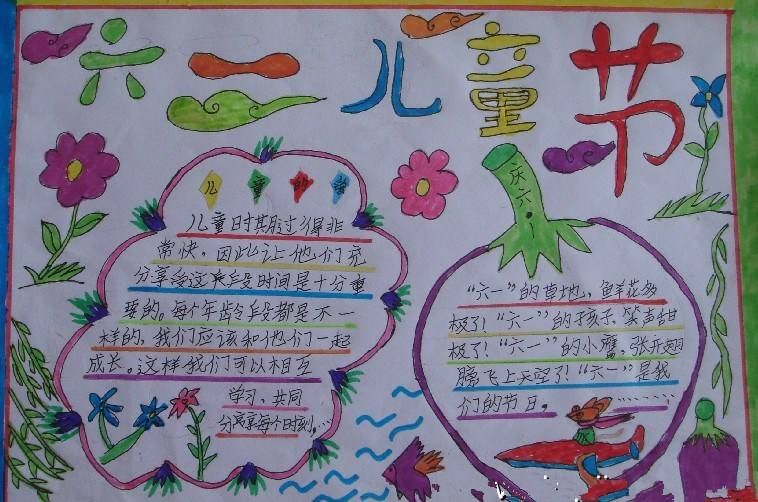 六一儿童节
儿童时期过得非
常快，因此让他们充
分享受这段时间是十分重
要的。每个年龄段都是不一
样的，我们应该和他们一起
成长。这样我们可以相互
学习、共同
分享每个时刻，…
庆六一
“六一”的草地，鲜花多
极了！“六一”的孩子、笑声甜
极了！“六一”的小鹰，张开翅
膀飞上天空了！“六一”是我
们的节日。………